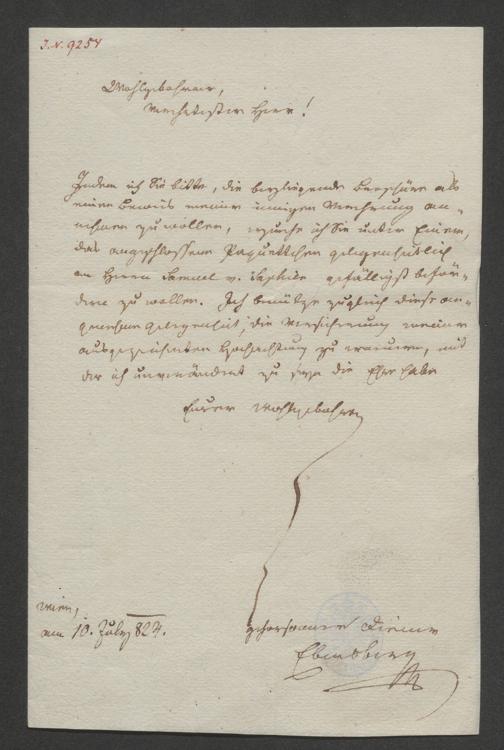 I.N. 9254
Wohlgebohrner,
Verehrtester Herr!
Indem ich Sie bitte, die beyliegende Brochüre als
einen Beweis meiner innigen Verehrung an-
nehmen zu wollen, ersuche ich Sie unter Einem,
das angeschlossene Paquettchen gelegenheitlich
an Herrn Samuel v. gefälligst beför-
dern zu wollen. Ich benütze zugleich diese an-
genehme Gelegenheit, die Versicherung meiner
ausgezeichneten Hochachtung zu erneuern, mit
der ich unverändert zu seyn die Ehre habe
Euer Wohlgebohren
Wien,
am 10. July 824.
gehorsamer Diener
Ebersberg